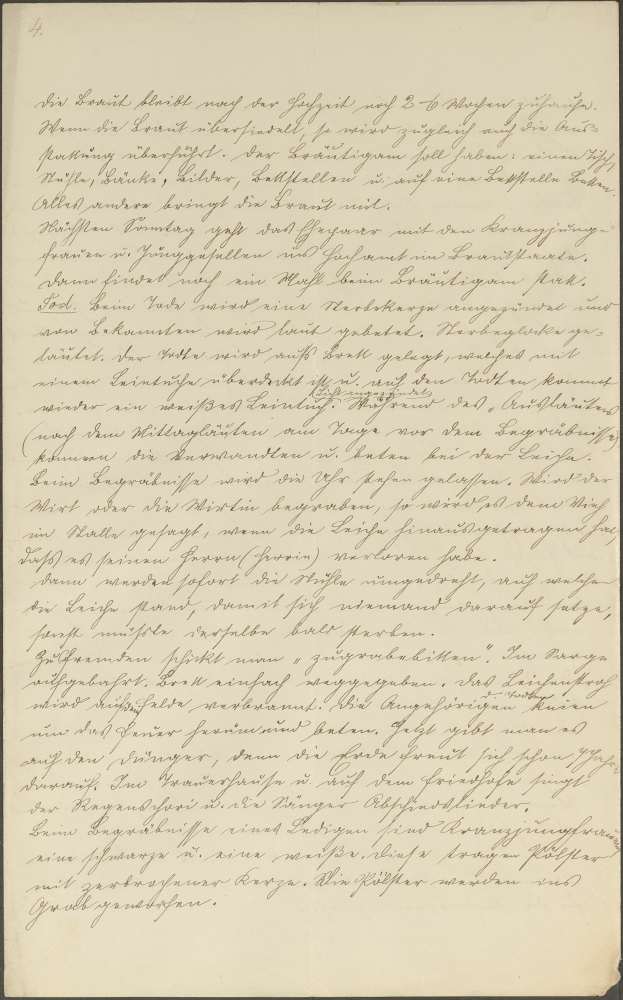 4.
Die Braut bleibt nach der Hochzeit noch 2-6 Wochen zuhause.
Wenn die Braut übersiedelt, so wird zugleich auch die Aus-
stattung überführt. Der Bräutigam soll haben: einen Tisch,
Stühle, Bänke, Bilder, Bettstellen u. auf eine Bettstelle Betten.
Alles andere bringt die Braut mit.
Nächsten Sonntag geht das Ehepaar mit den Kranzjung-
frauen u. Junggesellen ins Hochamt im Brautstaate.
Dann findet noch ein Mahl beim Bräutigam statt.
Tod. Beim Tode wird eine Sterbekerze angezündet und
von Bekannten wird laut gebetet. Sterbeglocke ge-
läutet. Der Todte wird aufs Brett gelegt, welches mit
einem Leintuche überdeckt ist u. auf den Todten kommt
(Licht angezündet)
wieder ein weißes Leintuch. Während des "Ausläutens
(nach dem Mittagläuten am Tage vor dem Begräbnisse)
kommen die Verwandten u. beten bei der Leiche.
Beim Begräbnisse wird die Uhr stehen gelassen. Wird der
Wirt oder die Wirtin begraben, so wird es dem Vieh
im Stalle gesagt, wenn die Leiche hinausgetragen hat,
dass es seinen Herrn (Herrin) verloren habe.
Dann werden sofort die Stühle umgedreht, auf welchen
die Leiche stand, damit sich niemand darauf setze,
sonst müsste derselbe bald sterben.
Zu Fremden schickt man "zugrabebitten". Im Sarge
aufgebahrt. Brett einfach weggegeben. Das Leichenstroh
wird auf dem Felde verbrannt. Die Angehörigen d. Todten knien
um das Feuer herum und beten. Jetzt gibt man es
auf den Dünger, denn die Erde freut sich schon 7 Jahre
darauf. Im Trauerhause u. auf dem Friedhofe singt
der Regenschori u. die Sänger Abschiedslieder.
Beim Begräbnisse eines Ledigen sind Kranzjungfrauen
eine schwarze u. eine weiße. Diese tragen Pölster
mit zerbrochener Kerze. Die Pölster werden ins
Grab geworfen.